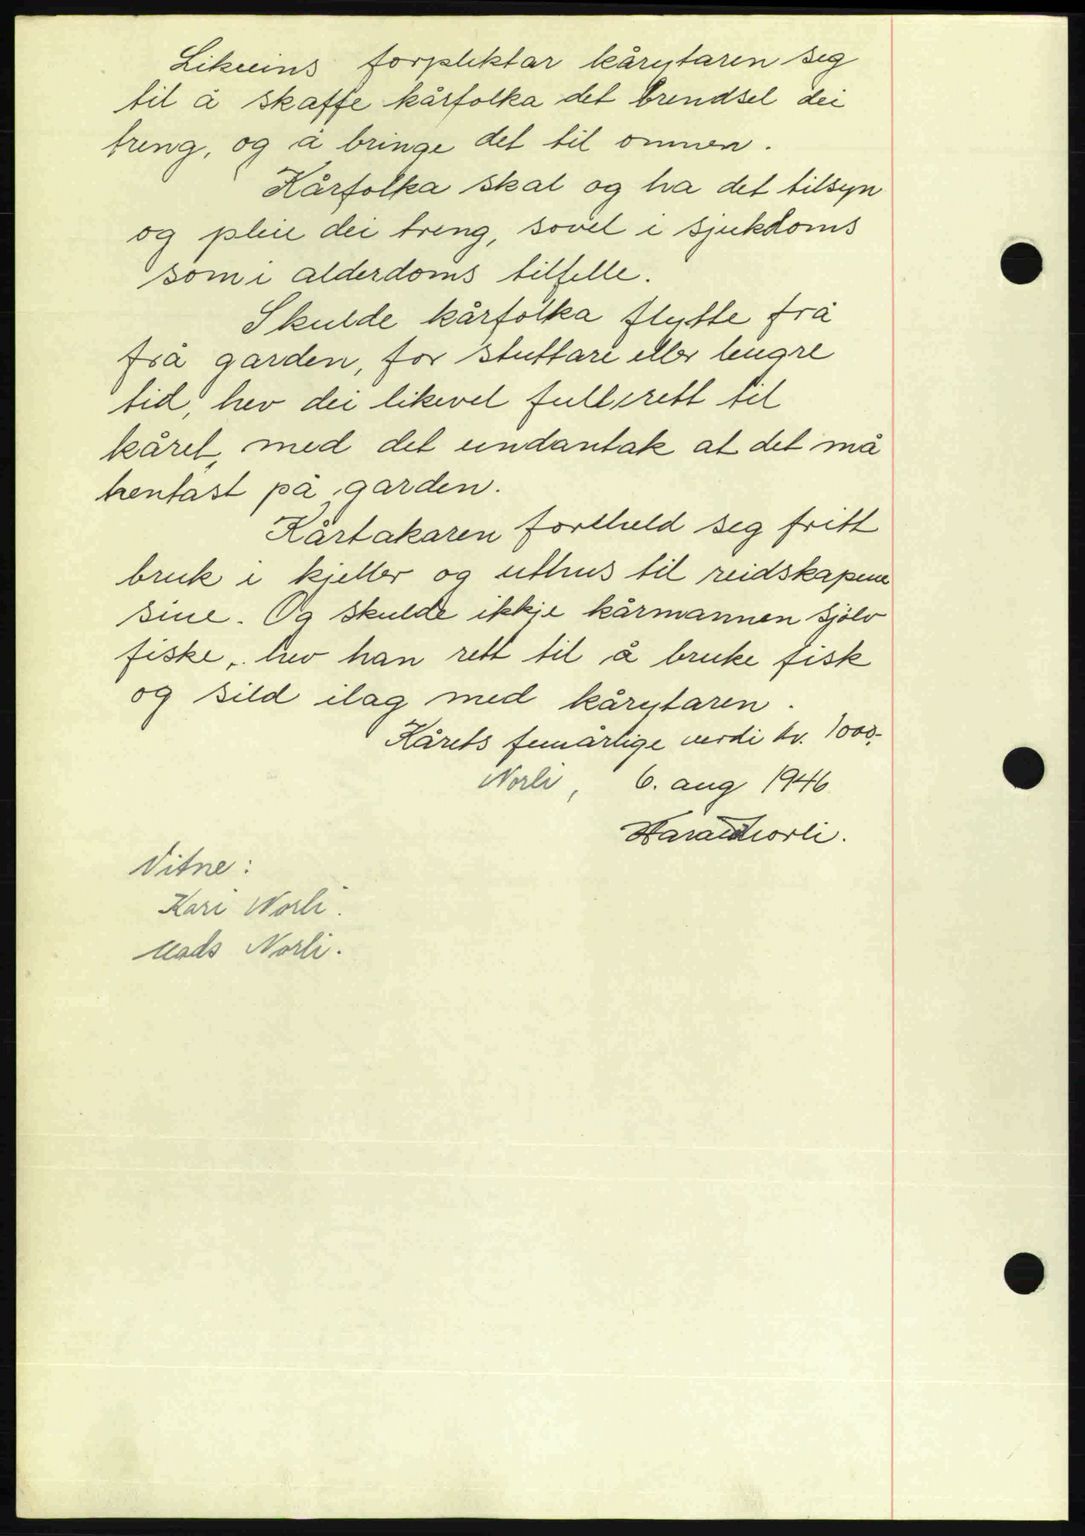 Likeeins forpliktar kårytaren seg
til å skaffe kårfolka det brendsel dei
treng, og å bringe det til omnen.
Kårfolka skal og ha det tilsyn
og pleie dei treng, sovel i sjukdoms
som i alderdoms tilfelle.
Skulde kårfolka flytte frå
frå garden, for stuttare eller lengre
tid, hev dei likevel full rett til
kåret, med det undantak at det må
hentast på garden.
Kårtakaren foreheld seg fritt
bruk i kjeller og uthus til reidskapene
sine. Og skulde ikkje kårmannen sjølv
fiske, hev han rett til å bruke fisk
og sild ilag med kårytaren.
Kårets femårlige verdi kr. 1000,-
Norli, 6. aug 1946
Harald Norli.
Vitne:
Kari Norli.
Mads Norli.